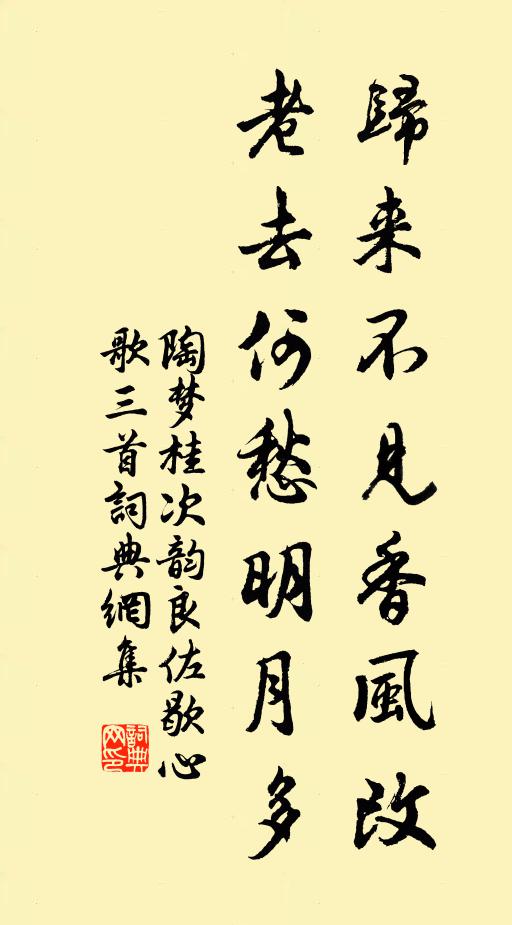 歸来不見香風改
老去何愁明月多
陶梦桂次韵良佐歇心
歌三首詞典網集
詞典網印